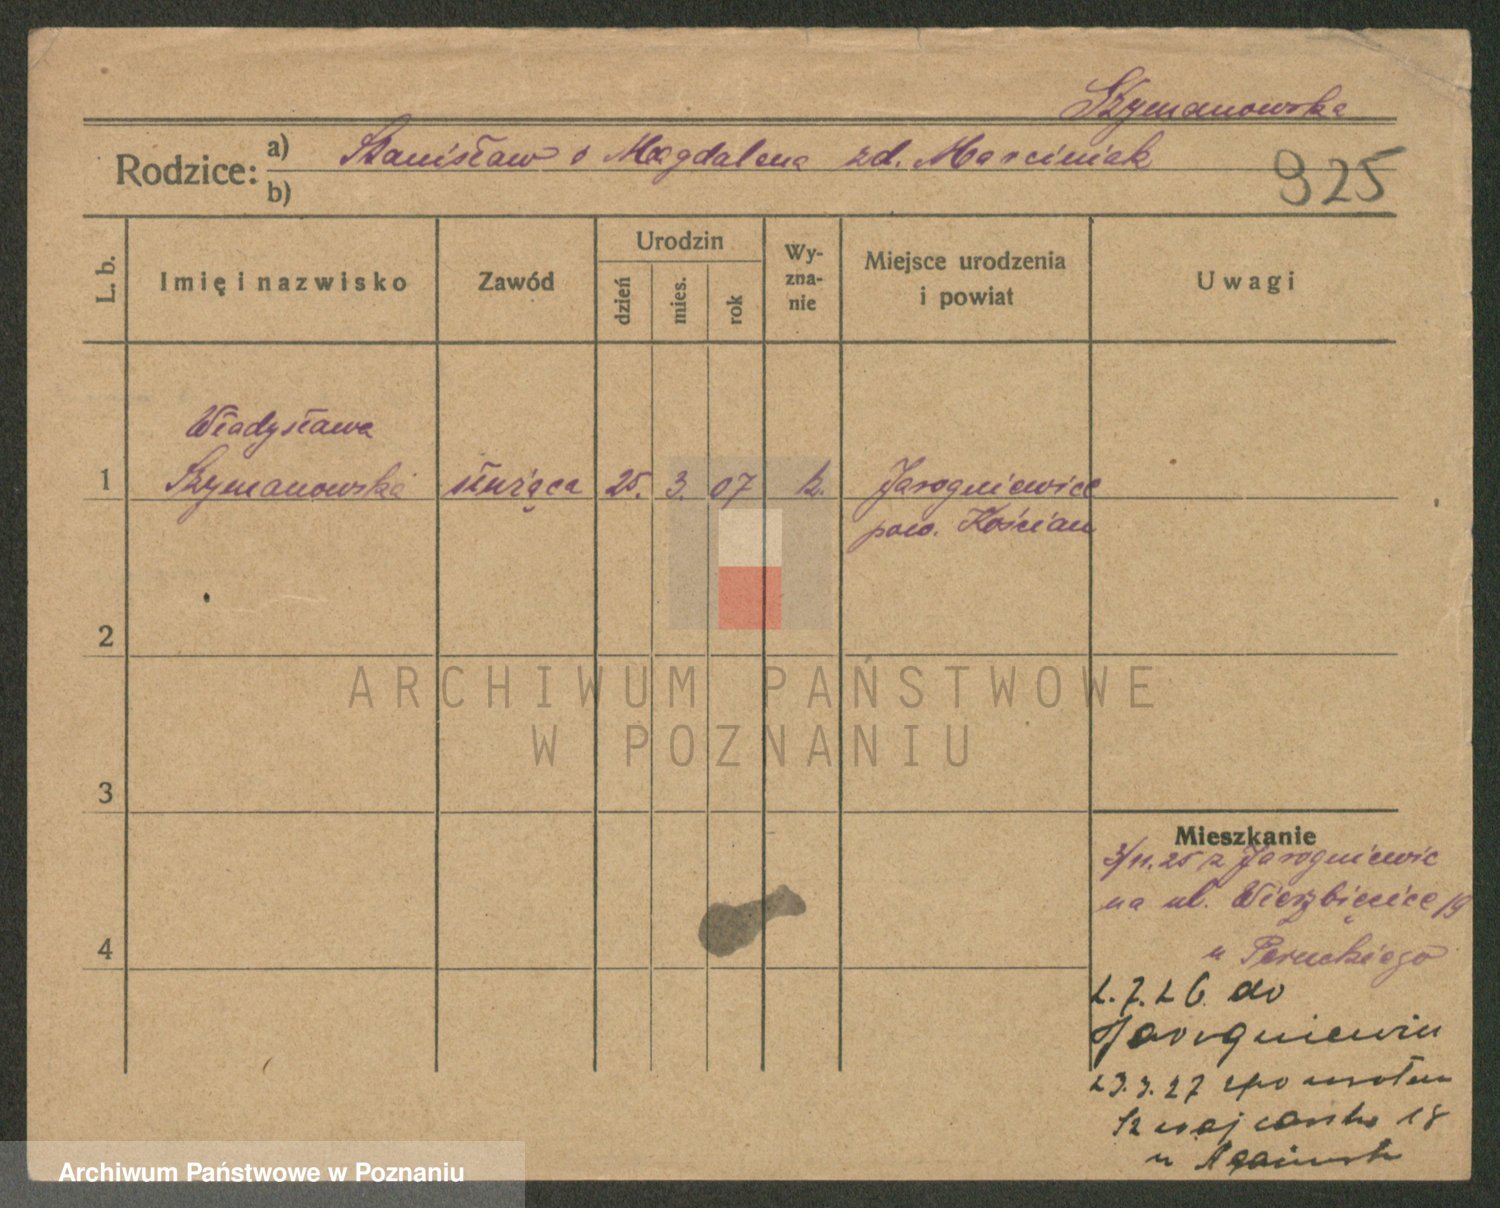 Szymanowska
Rodzice: a) Stanisław i Magdalena zd. Marciniak
b)
925
L. b.
Imię i nazwisko
Zawód
Urodzin
dzień
mies.
rok
Wy-
zna-
nie
Miejsce urodzenia
i powiat
Uwagi
Władysława
1 Szymanowska służąca 25. 3. 07 k. Jarogniewice
pow. Kościan
2
ARCHIWUM PAŃSTWOWE
W POZNANIU
3
Mieszkanie
3/11.25 z Jarogniewic
na ul. Wierzbięcice 19
u
4
2.7.26 do
Jarogniewic
23.3.27
Szwajcarska 18
u
Archiwum Państwowe w Poznaniu